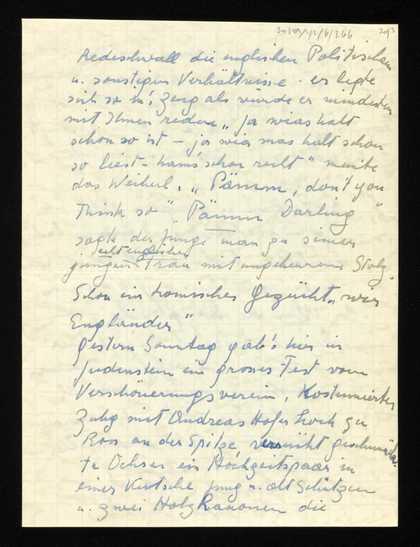 Redeschwall die englischen Politischen
u. sonstigen Verhältnisse. er legte
sich so in's Zeug als würde er mindestens
mit Ihnen reden „ ja wias halt
schon so ist – ja wia mas halt schon
so liest – ham's schon recht" meinte
das Weiberl. „ Pämm, don't you
think so" „ Pämm Darling"
sagte der junge man zu seiner
echt englischen
jungen Frau mit ungeheurem Stolz.
Schon ein komisches Gezücht „
Engländer"
Gestern Sonntag gab's hier in
Judenstein ein grosses Fest vom
Verschönerungsverein, Kostümierter
Zuhg mit Andreas Hofer hoch zu
Ross an der Spitze geschmück
te Ochsen ein Hochzeitspaar in
einer Kutsche jung u. alt Schützen
u. zwei Holz Kanonen die